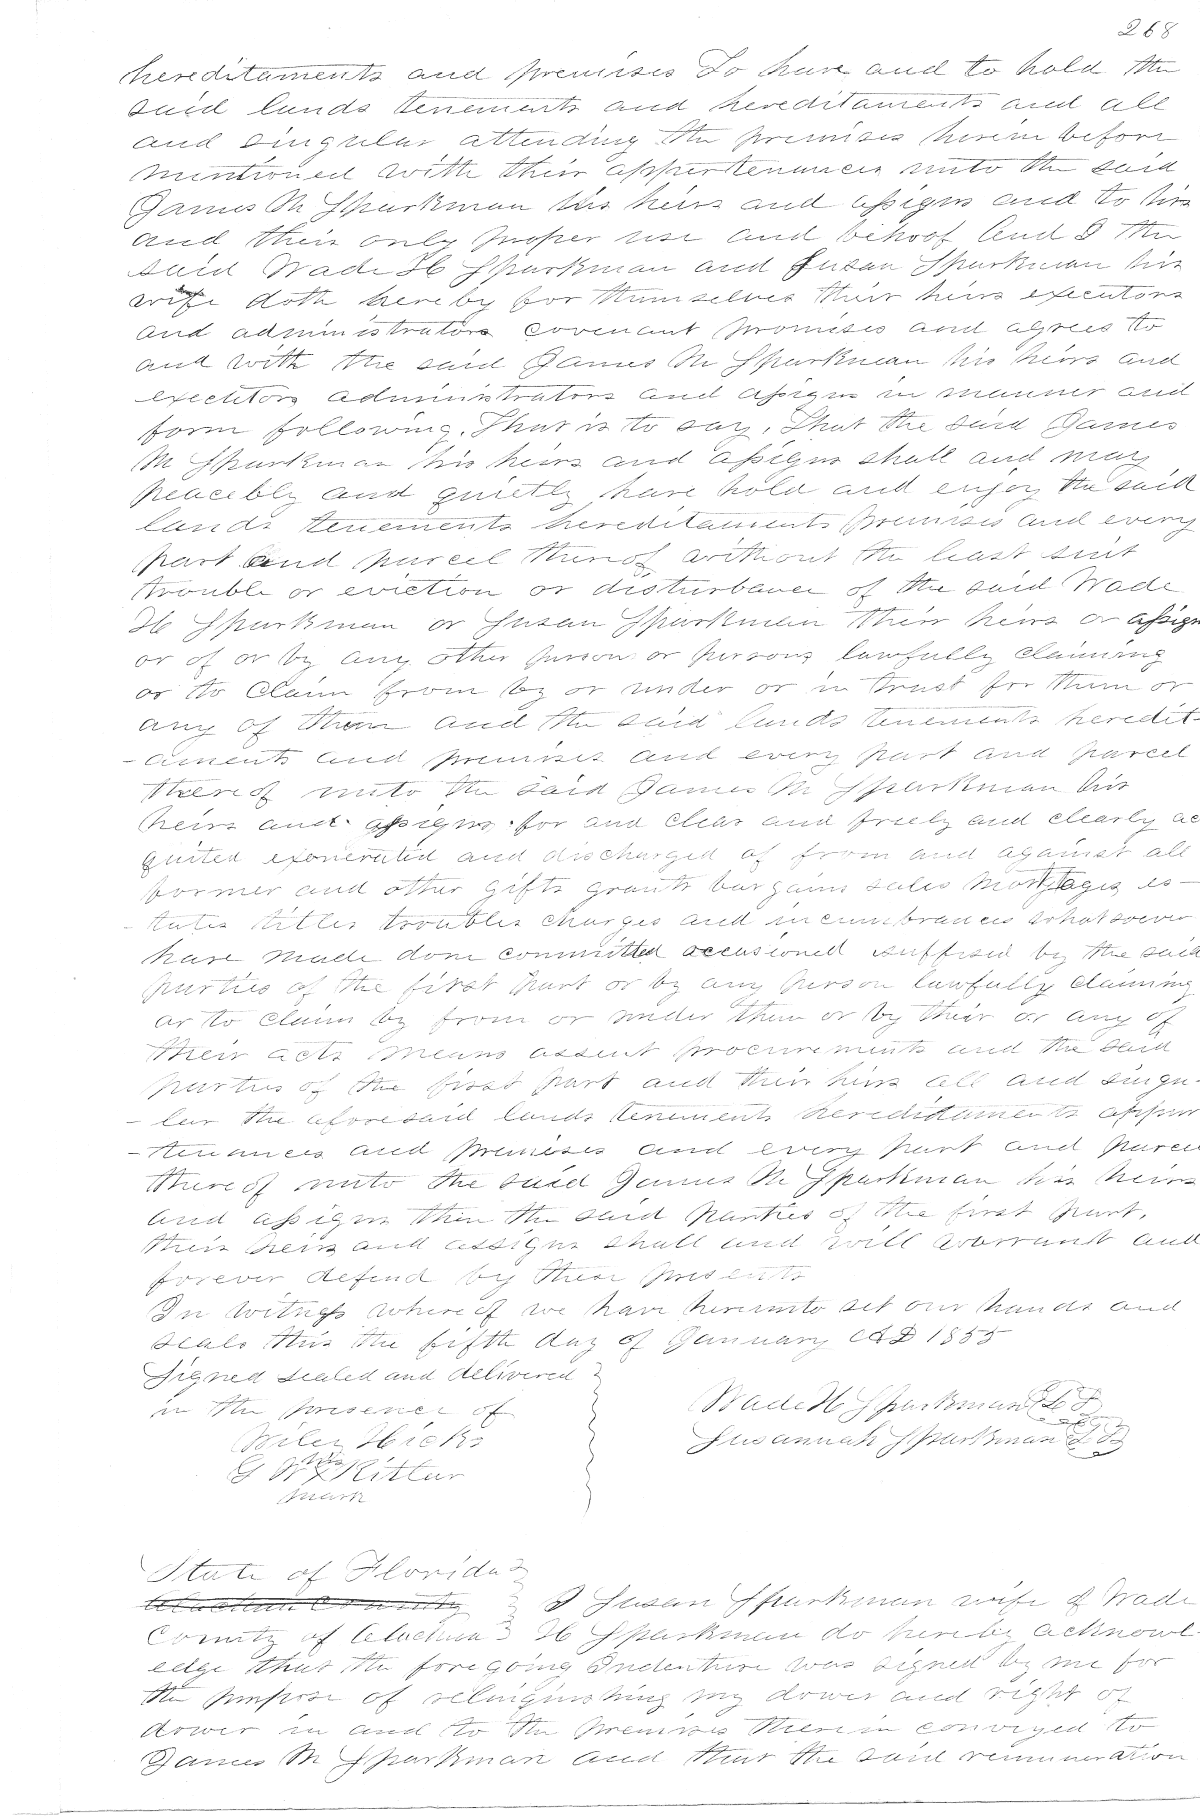 268
hereditaments and premises To have and to hold the
said lands tenements and hereditaments and all
and singular attending the premises herein before
mentioned with their appertenances unto the said
James M Sparkman his heirs and assigns and to his
and their only proper use and behoof And I the
said Wade H Sparkman and Susan Sparkman his
wife doth hereby for themselves their heirs executors
and administrators covenant promises and agrees to
and with the said James M Sparkman his heirs and
executors administrators and assigns in manner and
form following. That is to say, That the said James
M Sparkman his heirs and assigns shall and may
peacebly and quietly have hold and enjoy the said
lands tenements hereditaments premises and every
part and parcel thereof without the least suit
trouble or eviction or disturbance of the said Wade
H Sparkman or Susan Sparkman their heirs or assign
or of or by any other person or persons lawfully claiming
or to claim from by or under or in trust for them or
any of them and the said lands tenements heredit-
-aments and premises and every part and parcel
thereof unto the said James M Sparkman his
heirs and assigns for and clear and freely and clearly ac
quited exonerated and discharged of from and against all
former and other gifts grants bargains sales mortgages es-
-tates titles troubles charges and incumbrances whatsoever
have made done committed occasioned suffised by the said
parties of the first part or by any person lawfully claiming
or to claim by from or under them or by their or any of
their acts means assent procurements and the said
parties of the first part and their heirs all and singu-
-lar the aforesaid lands tenements hereditaments appur
-tenances and premises and every part and parcel
thereof unto the said James M Sparkman his heirs
and assigns then the said parties of the first part,
their heirs and assigns shall and will warrant and
forever defend by these presents
In witness whereof we have hereunto set our hands and
seals this the fifth day of January AD 1855
Signed sealed and delivered
in the presence of
Wade H Sparkman L S
Wiley Hicks
Susannah Sparkman L S
his
G W X Kitler
mark
State of Florida
Alachua County I Susan Sparkman wife of Wade
County of Alachua H Sparkman do hereby acknowl-
edge that the foregoing Indenture was signed by me for
the purpose of relinquishing my dower and right of
dower in and to the premises therein conveyed to
James M Sparkman and that the said remuneration